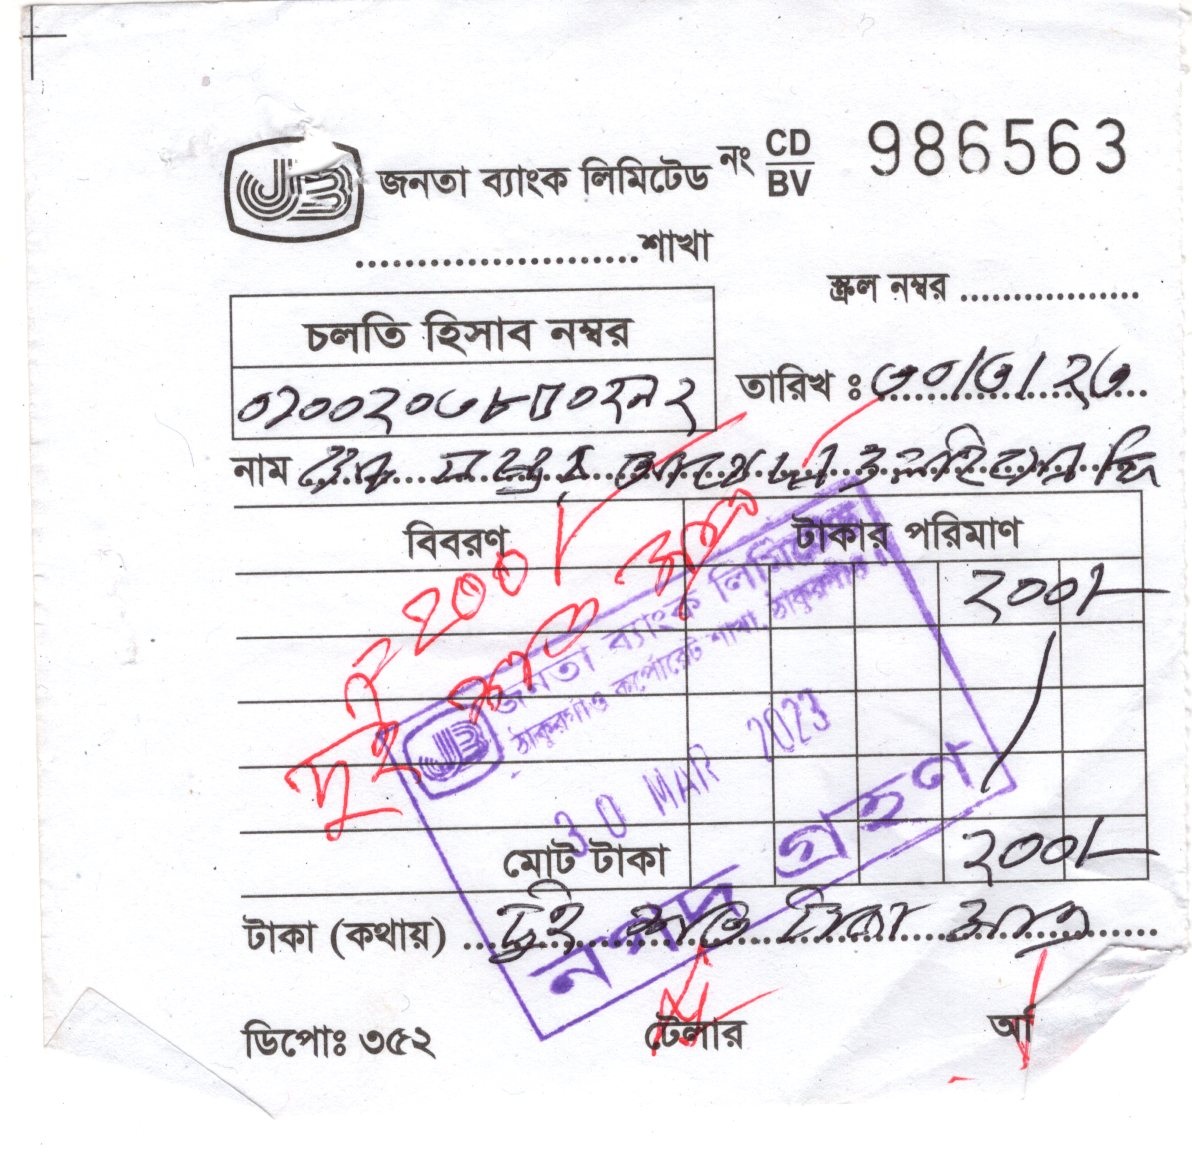 জনতা ব্যাংক লিমিটেড নং CD/BV 986563
....................শাখা
স্ক্রল নম্বর ................
চলতি হিসাব নম্বর
তারিখ ঃ ৩০/৩/২৩
নাম
বিবরণ টাকার পরিমাণ
২০০/-
২০০/
দুই শত
জনতা ব্যাংক লিমিটেড
ঠাকুরগাঁও কর্পোরেট শাখা, ঠাকুরগাঁও।
30 MAR 2023
নগদ গ্রহণ
মোট টাকা ২০০/-
টাকা (কথায়) দুই শত টাকা মাত্র
ডিপোঃ ৩৫২ টেলার